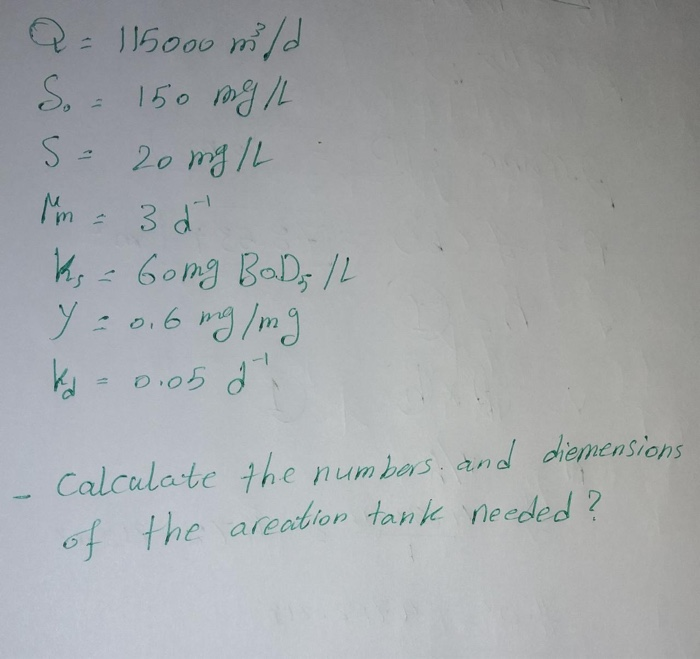 Q = 115000 m³/d
S₀ = 150 mg/L
S = 20 mg/L
μm = 3 d⁻¹
ks = 60mg BOD₅/L
Y = 0.6 mg/mg
kd = 0.05 d⁻¹
- Calculate the numbers and diemensions
of the areation tank needed?